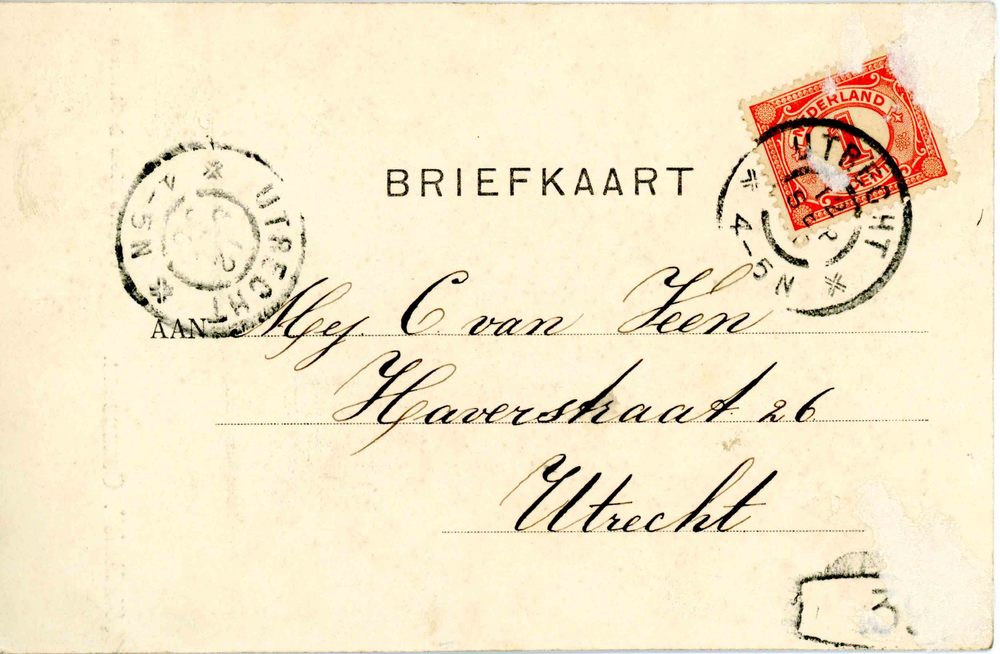 BRIEFKAART
NEDERLAND
1
CENT
UTRECHT
4-5N
UTRECHT
4-5N
AAN Mej C van Veen
Haverstraat 26
Utrecht